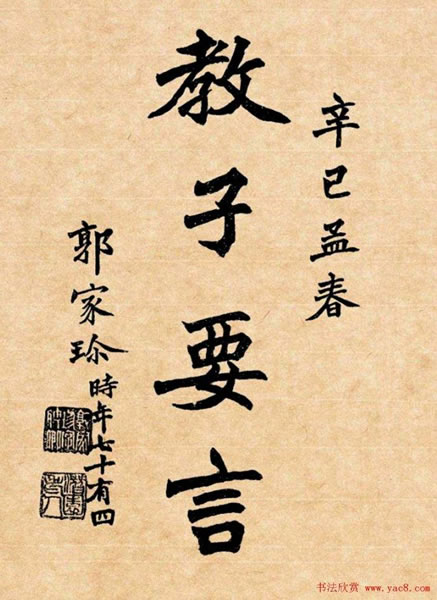 辛巳孟春
教子要言
郭家珍時年七十有四
书法欣赏 www.yac8.com